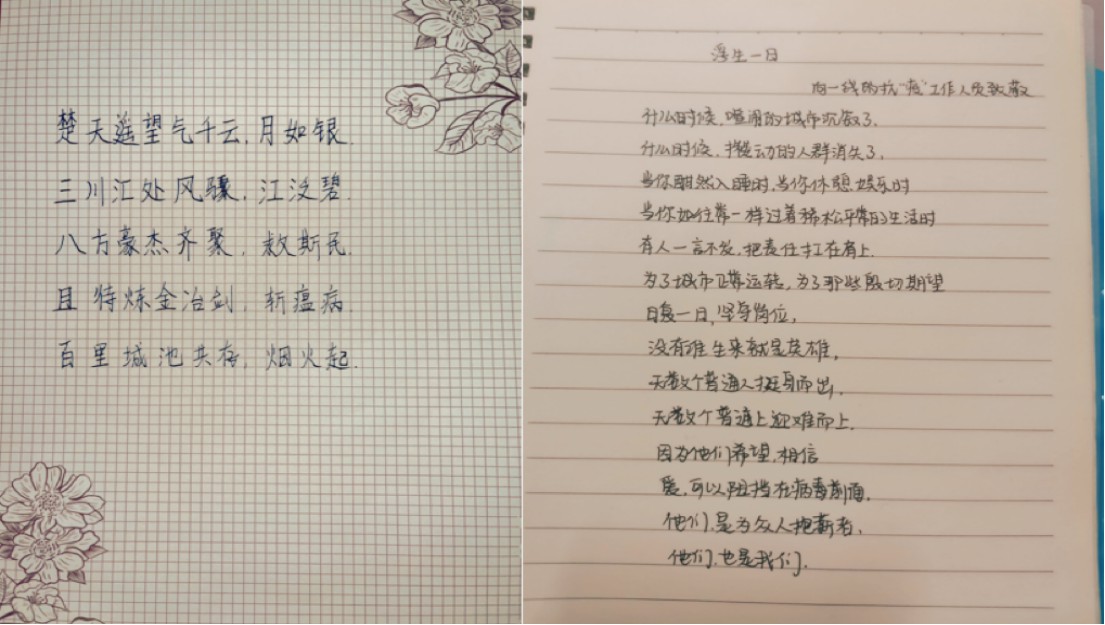 楚天遥望气千云,月如银.
三川汇处风骤,江泛碧.
八方豪杰齐聚,救斯民.
且待炼金冶剑,斩瘟病.
百里城池共存,烟火起.
浮生一日
向一线的抗“疫”工作人员致敬
什么时候,喧闹的城市沉寂了.
什么时候,攒动的人群消失了.
当你酣然入睡时,当你休憩娱乐时
当你如往常一样过着稀松平常的生活时
有人一言不发,把责任扛在肩上.
为了城市正常运转,为了那些殷切期望
日复一日,坚守岗位,
没有谁生来就是英雄,
无数个普通人挺身而出,
无数个普通人迎难而上.
因为他们希望,相信
爱,可以阻挡在病毒前面,
他们,是为众人抱薪者,
他们,也是我们.